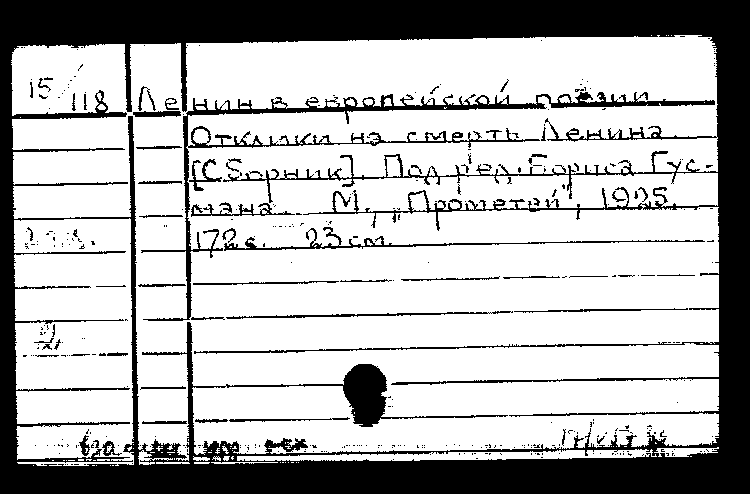 15/118 Ленин в европейской поэзии.
Отклики на смерть Ленина.
[Сборник]. Под ред. Бориса Гус-
мана. М., „Прометей", 1925.
172 с. 23 см.
2